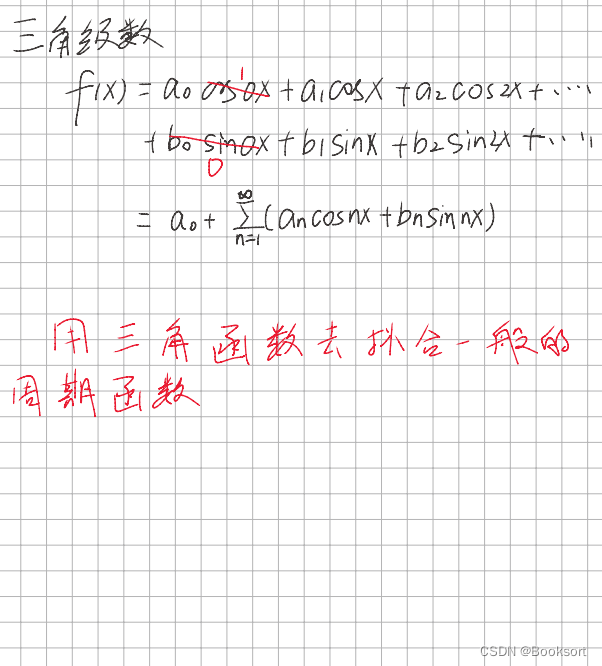 三角级数
f(x) = a₀ cos0x + a₁cosx + a₂cos2x + ....
1
+ b₀ sin0x + b₁sinx + b₂sin2x + ....
0
= a₀ + ∑(n=1 ∞)(aₙcosnx + bₙsin nx)
用三角函数去拟合一般的
周期函数
CSDN @Booksort